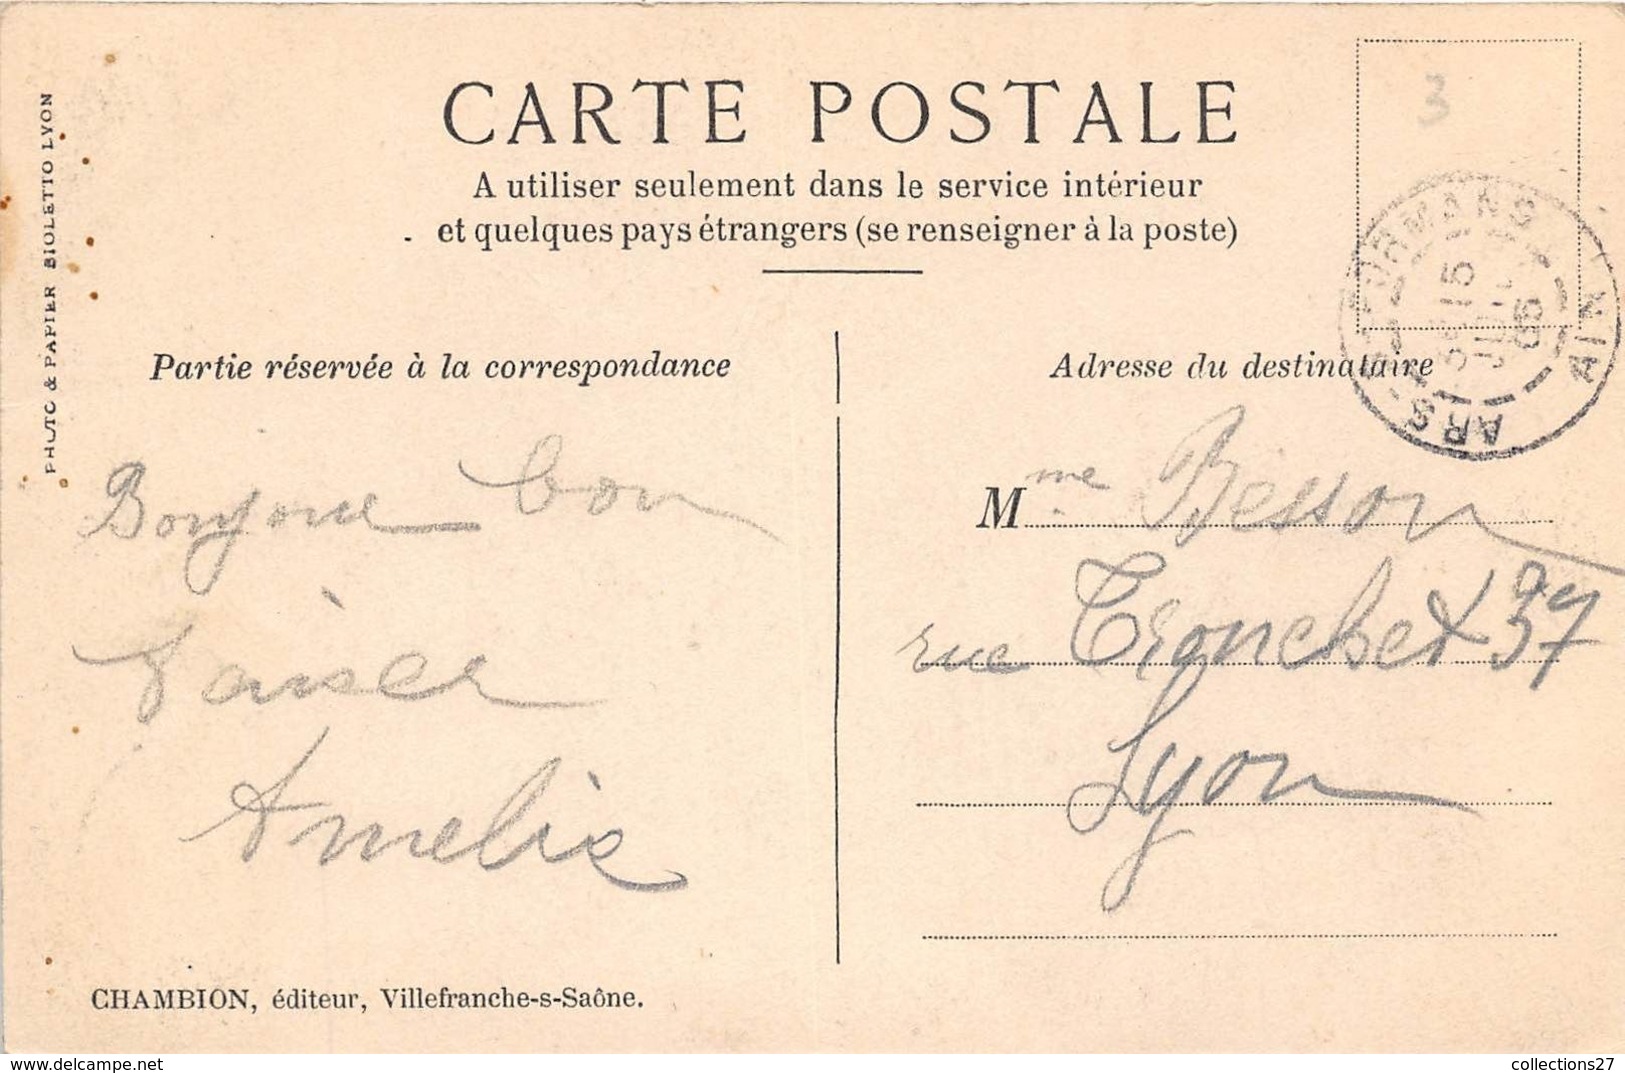 CARTE POSTALE
A utiliser seulement dans le service intérieur
et quelques pays étrangers (se renseigner à la poste)
PHOTO & PAPIER BIOLETTO LYON
3
ARS FORMANS AIN
15
05
Partie réservée à la correspondance
Bonjour bon
baiser
Amelie
CHAMBION, éditeur, Villefranche-s-Saône.
Adresse du destinataire
Mme Besson
rue Tronchet 37
Lyon
delcampe.net
collections27